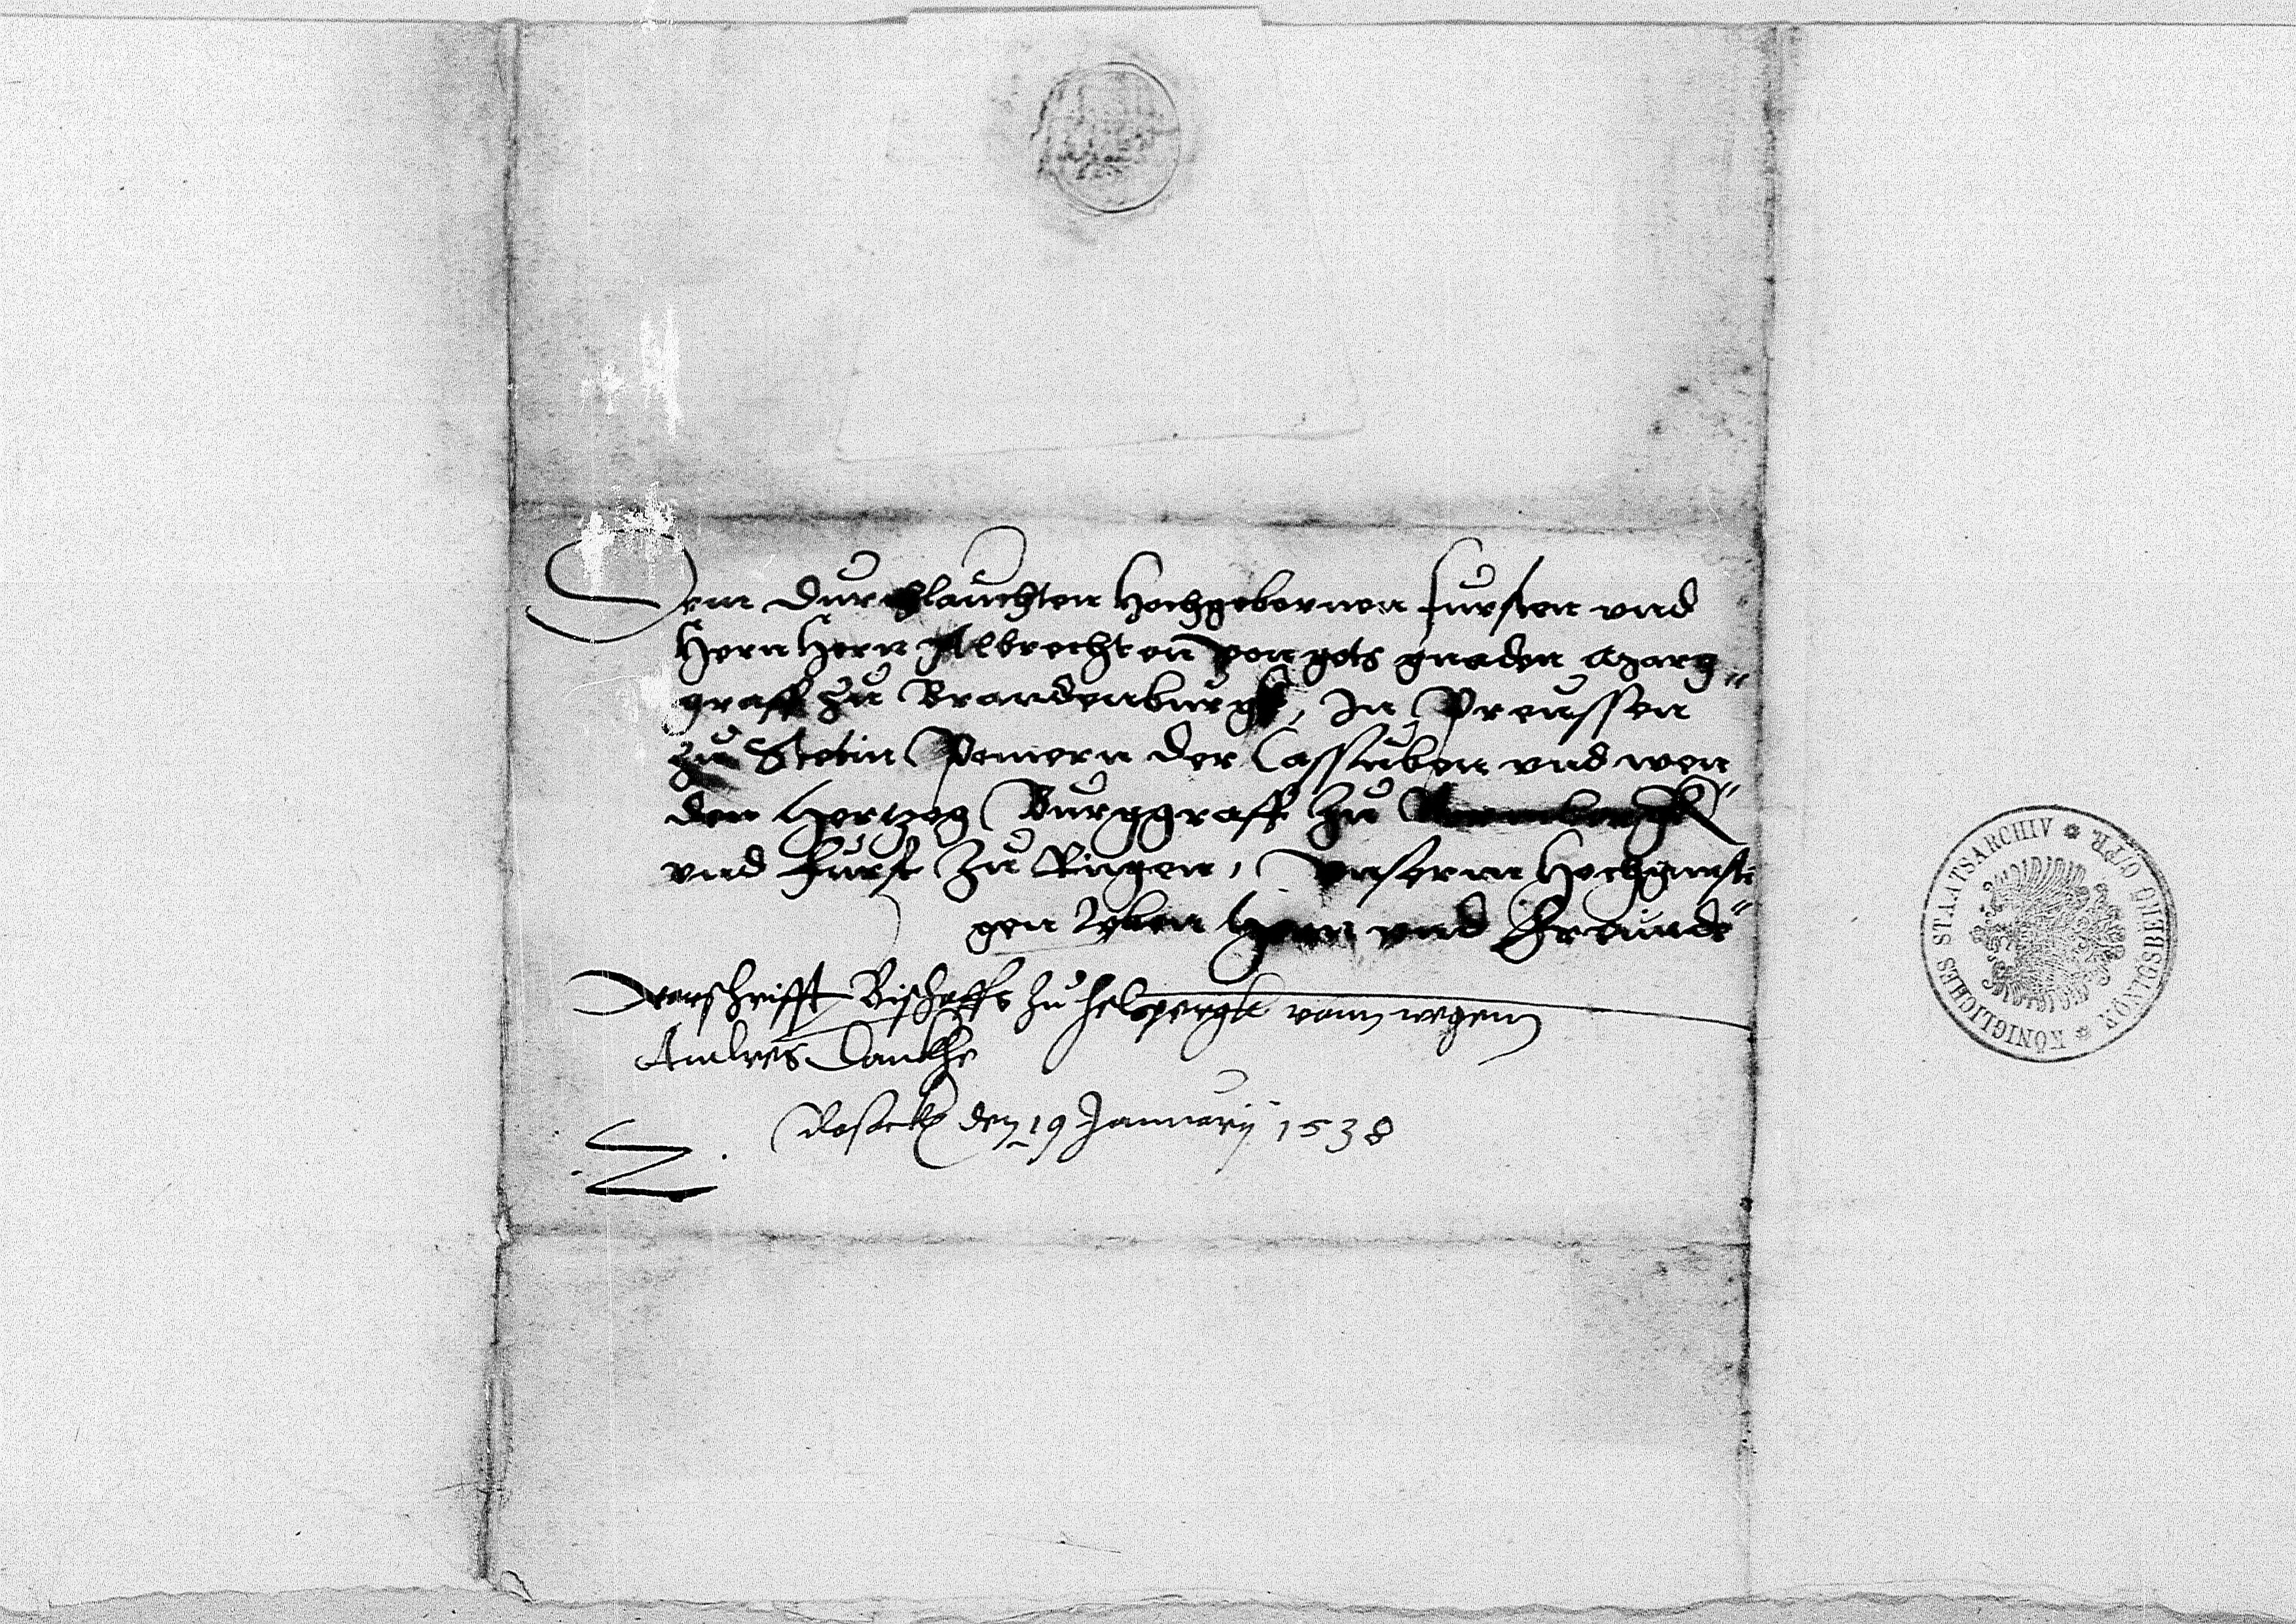 Dem durchlauchten Hochgebornen fursten vnd
Hern Hern Albrechten von gots gnaden Marg„
graff zu Brandenburgk, In Preussen
zu Stetin Pomern der Cassuben vnd wen„
den Hertzog Burggraff zu Nurmbergk
vnd furst zu Rugen, Vnserm Hochgunsti„
gen lyben Hern vnd Freunde
Vorschrifft Bischoffs zu helspergk vonn wegenn
Andres
den 19 Januarij 1538
KÖNIGLICHES STAATSARCHIV * KÖNIGSBERG O/PR. *